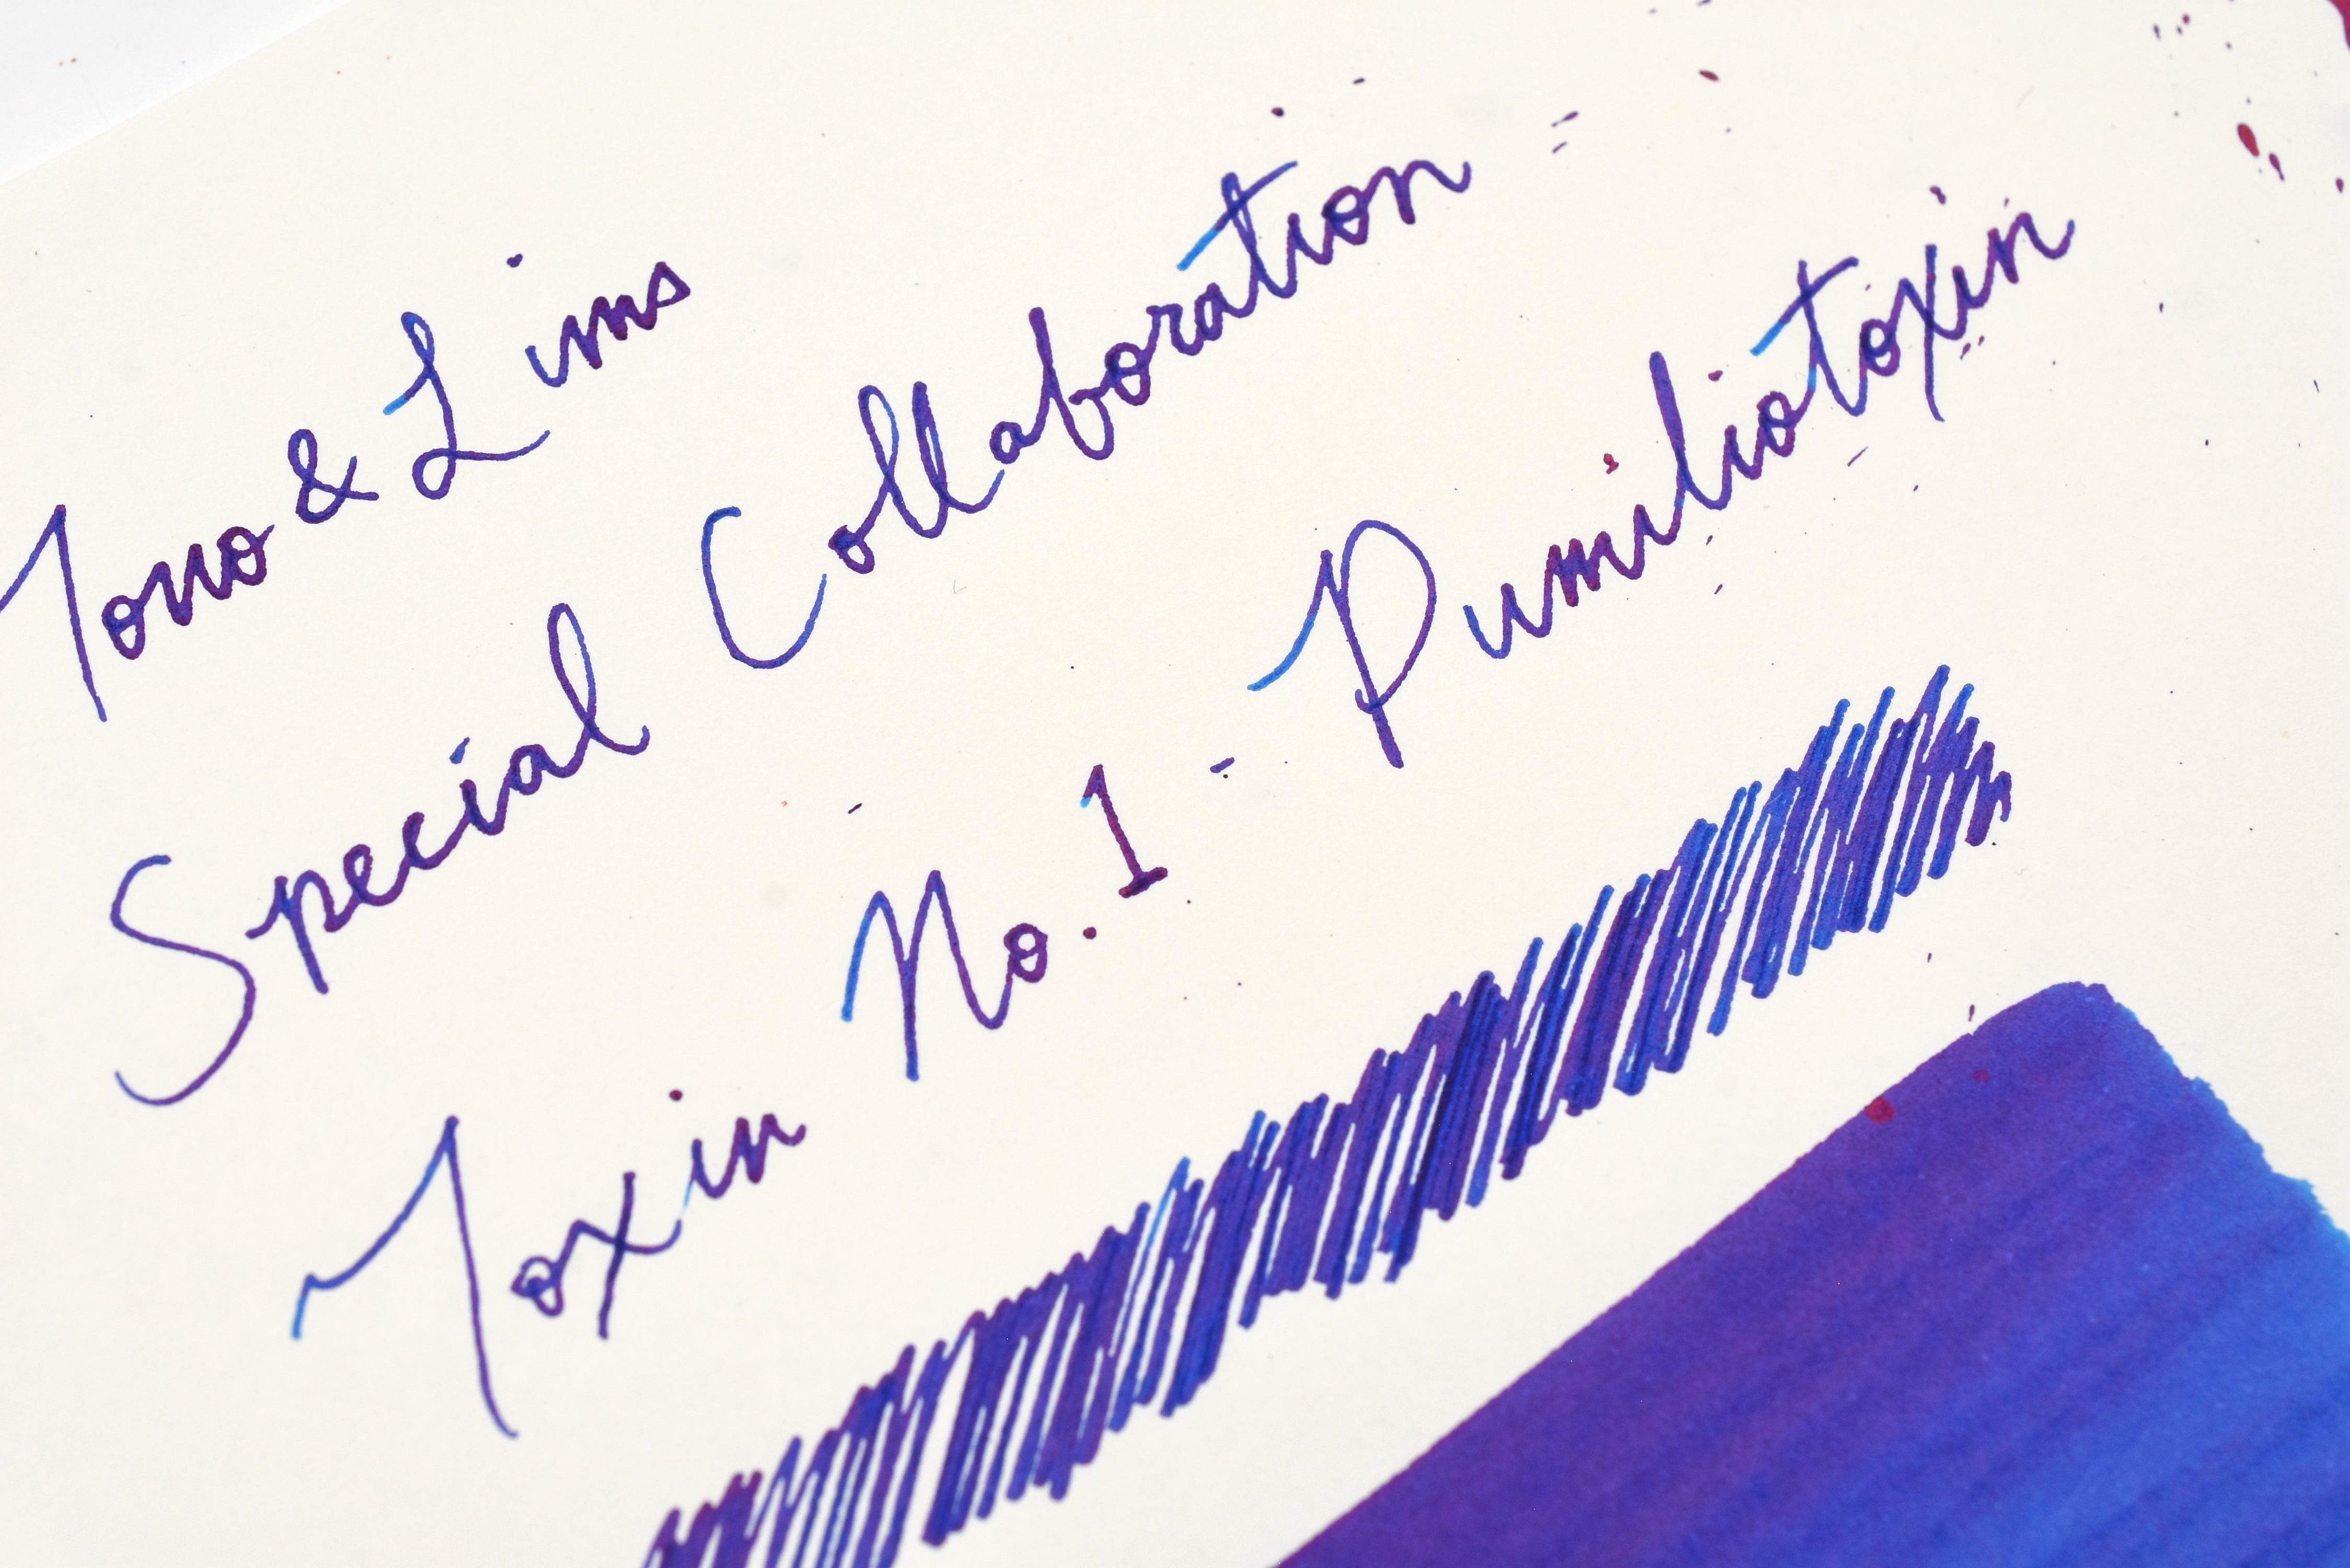 Tono & Lims
Special Collaboration -
Toxin No. 1 - Pumiliotoxin